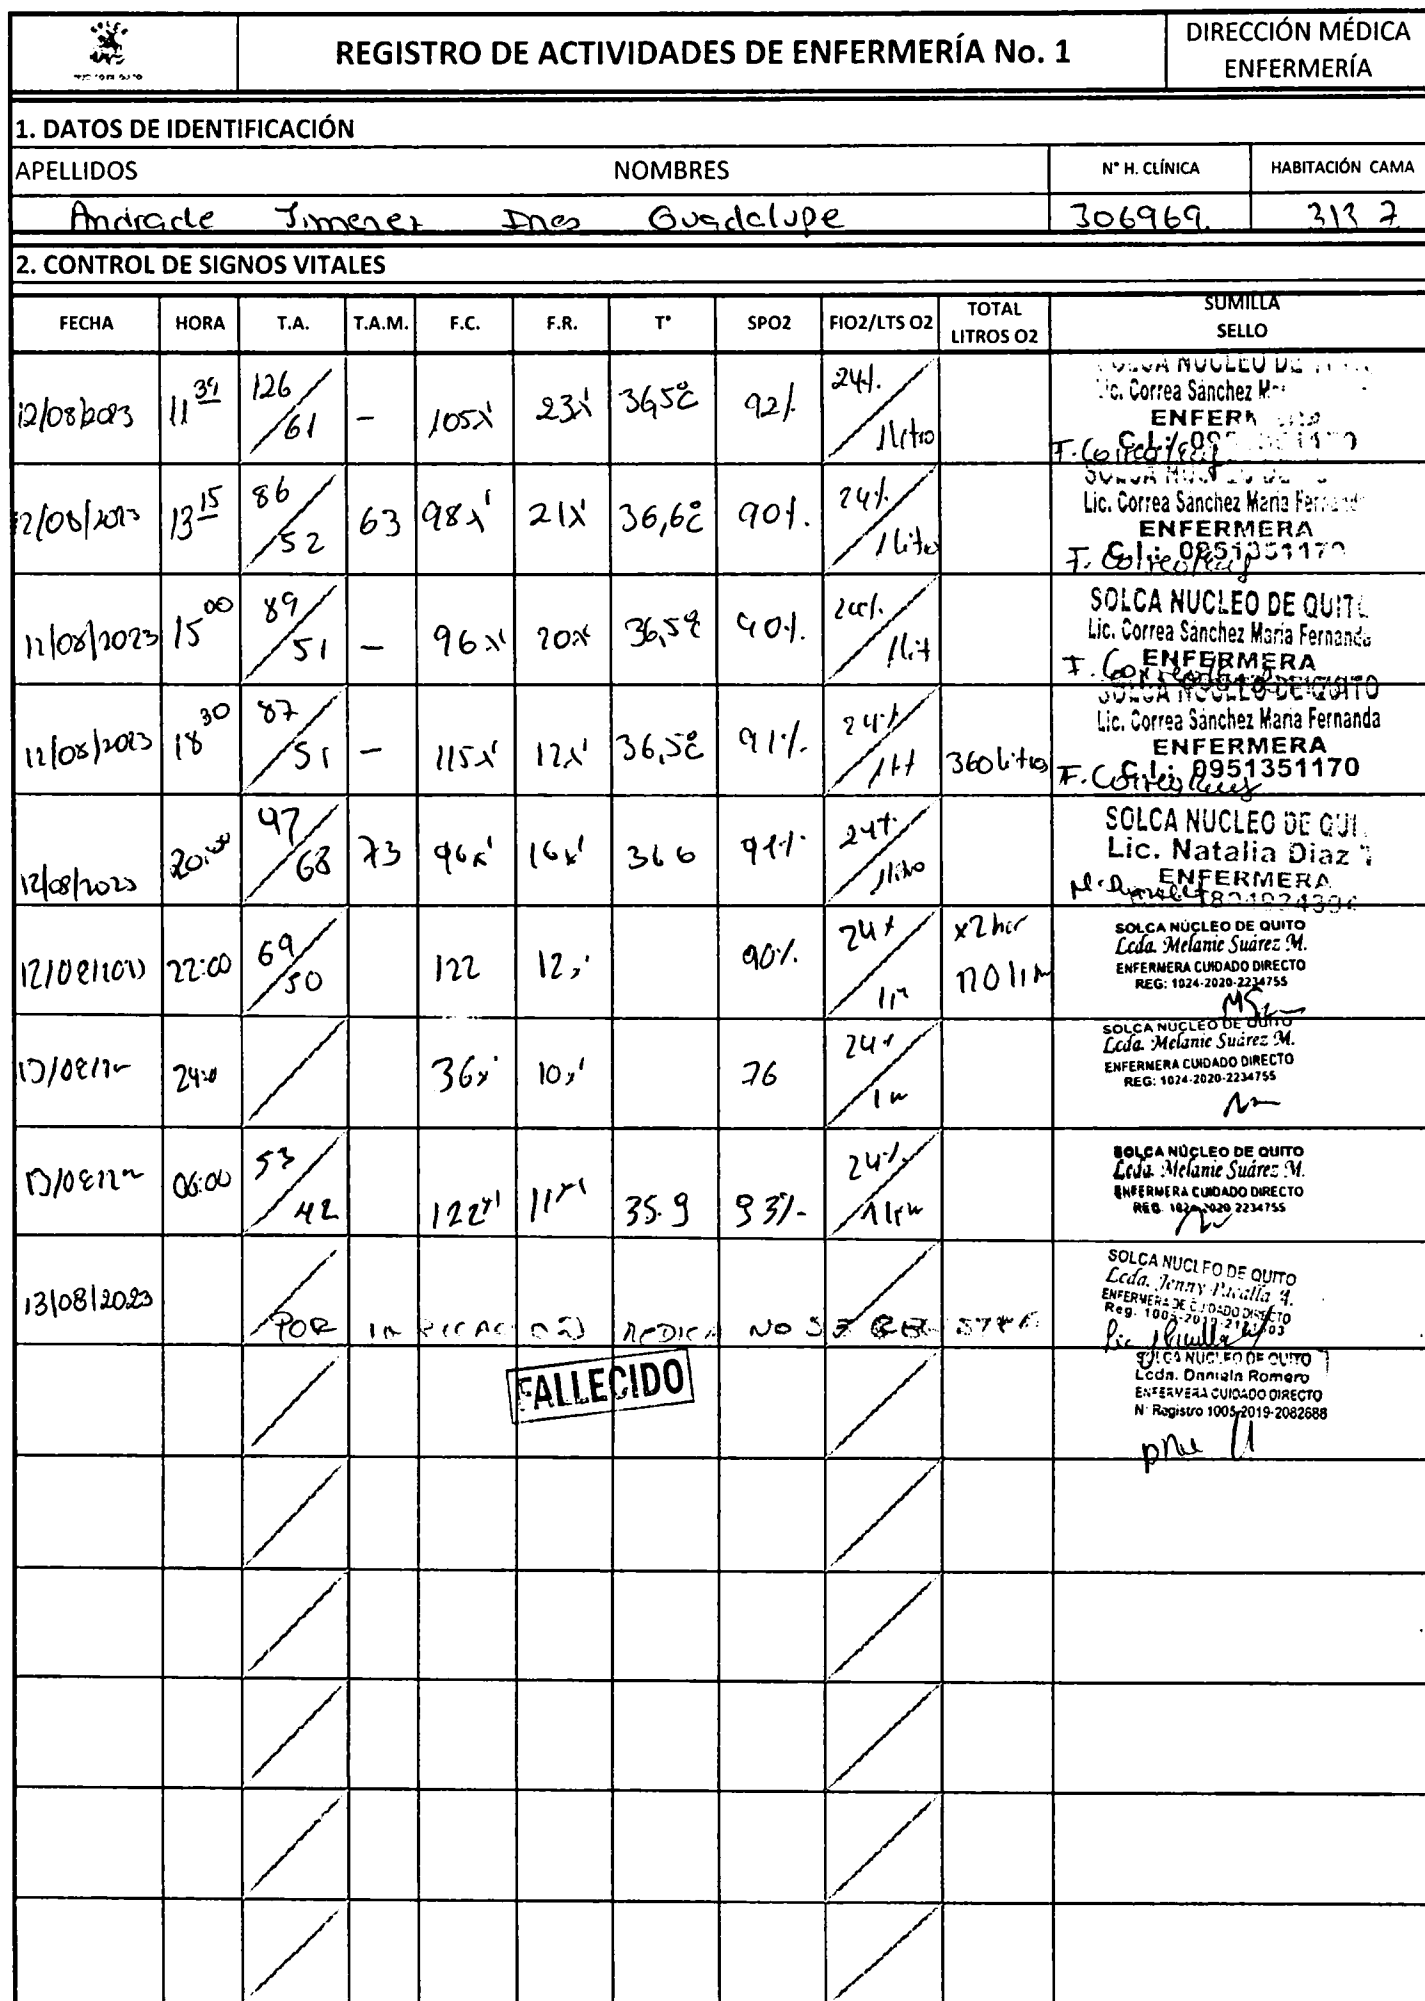 REGISTRO DE ACTIVIDADES DE ENFERMERÍA No. 1
DIRECCIÓN MÉDICA
ENFERMERÍA
1. DATOS DE IDENTIFICACIÓN
APELLIDOS NOMBRES N° H. CLÍNICA HABITACIÓN CAMA
Andrade Jimenez Ines Guadalupe 306969. 313 2
2. CONTROL DE SIGNOS VITALES
FECHA HORA T.A. T.A.M. F.C. F.R. T° SPO2 FIO2/LTS O2 TOTAL LITROS O2 SUMILLA SELLO
12/08/2023 11 39 126/61 - 105x' 23x' 36,5°C 92% 24%/1litro
Lic. Correa Sánchez
ENFERM
12/08/2023 13 15 86/52 63 98x' 21x' 36,6°C 90% 24%/1lito
Lic. Correa Sánchez Maria Fernanda
ENFERMERA
C.I.: 0951351170
12/08/2023 15 00 89/51 - 96x' 20x' 36,5°C 90% 1lit
SOLCA NUCLEO DE QUITO
Lic. Correa Sánchez María Fernanda
ENFERMERA
12/08/2023 18 30 87/51 - 115x' 12x' 36,5°C 91% 24%/1lt 360 litros
SOLCA NUCLEO DE QUITO
Lic. Correa Sánchez María Fernanda
ENFERMERA
C.I.: 0951351170
12/08/2023 20:00 97/68 73 96x' 16x' 36 6 91% 24%/1litro
SOLCA NUCLEO DE QUI
Lic. Natalia Diaz
ENFERMERA
22:00 69/50 122 12x' 90% 24% x2hor
SOLCA NÚCLEO DE QUITO
Lcda. Melanie Suárez M.
ENFERMERA CUIDADO DIRECTO
REG: 1024-2020-2234755
36x' 10x' 76 24%
SOLCA NÚCLEO DE QUITO
Lcda. Melanie Suárez M.
ENFERMERA CUIDADO DIRECTO
REG: 1024-2020-2234755
06:00 53/42 122x' 11x' 35.9 93% 24%
SOLCA NÚCLEO DE QUITO
Lcda. Melanie Suárez M.
ENFERMERA CUIDADO DIRECTO
REG. 1024-2020-2234755
13/08/2023 POR INDICACION MEDICA NO SE REGISTRA
SOLCA NUCLEO DE QUITO
Lcda. Jenny
ENFERMERA DE CUIDADO DIRECTO
FALLECIDO
SOLCA NUCLEO DE QUITO
Lcda. Daniela Romero
ENFERMERA CUIDADO DIRECTO
N° Registro 1005-2019-2082688